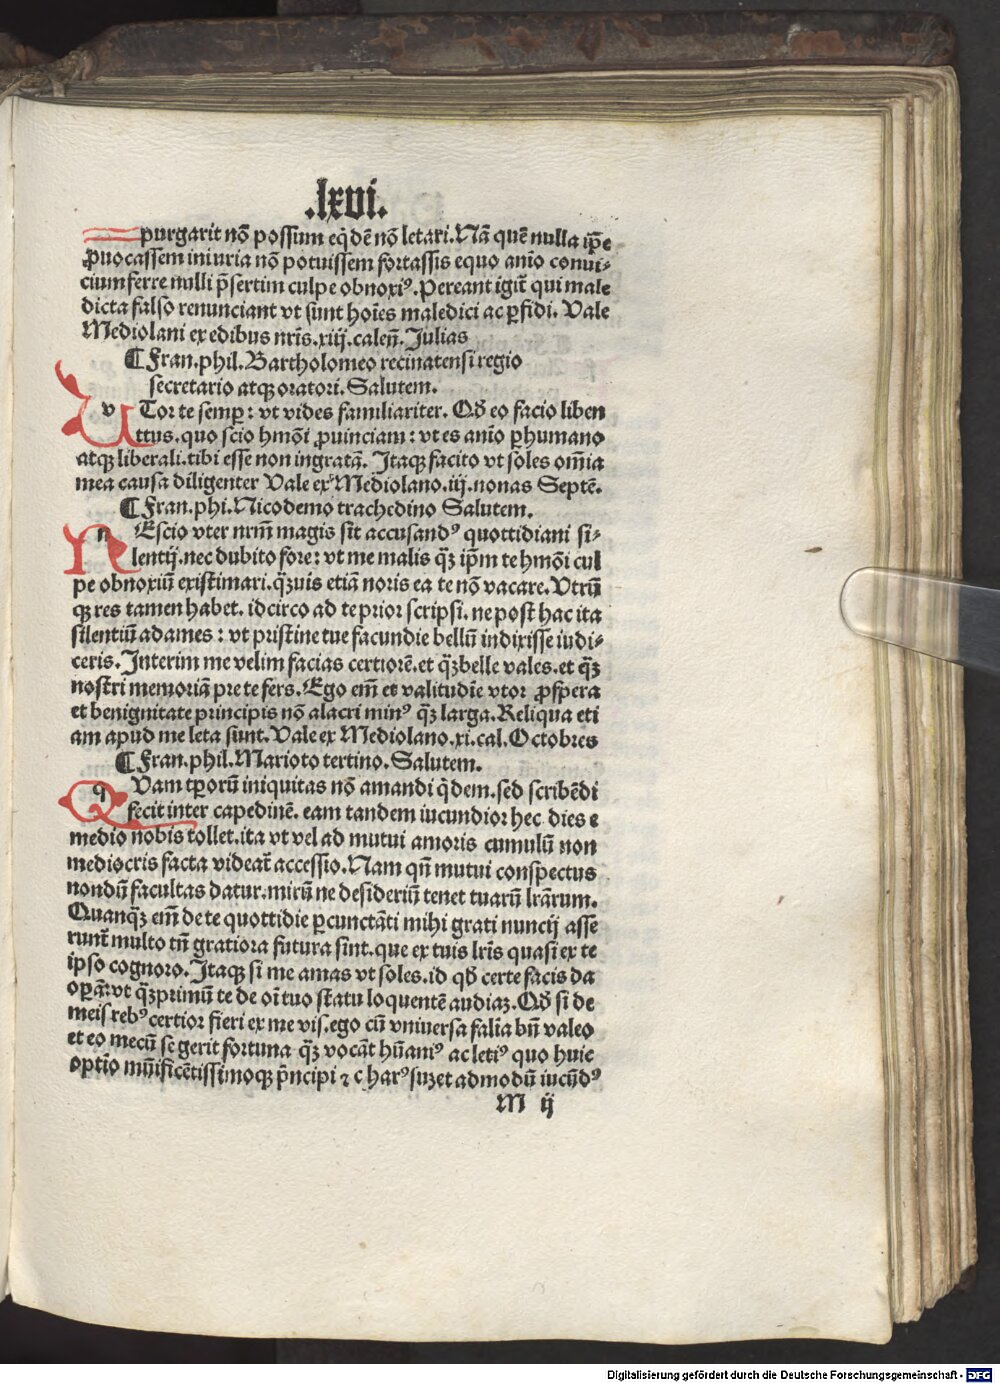 .lxvi.
purgarit nõ possum eq̃dẽ nõ letari. Nã quẽ nulla ip̃e
ꝓuocassem iniuria nõ potuissem fortassis equo anĩo conui-
cium ferre nulli p̃sertim culpe obnoxiꝰ. Pereant igit̃ qui male
dicta falso renunciant vt sunt hoĩes maledici ac ꝑfidi. Vale
Mediolani ex edibus nr̃is. xiij. caleñ. Julias
¶ Fran. phil. Bartholomeo recinatensi regio
secretario atqꝫ oratori. Salutem.
v Tor te semꝑ: vt vides familiariter. Qđ eo facio liben
tius. quo scio hmõi ꝓuinciam: vt es anĩo ꝑhumano
atqꝫ liberali. tibi esse non ingratã. Itaqꝫ facito vt soles om̃ia
mea causa diligenter Vale ex Mediolano. iij. nonas Septẽ.
¶ Fran. phi. Nicodemo trachedino Salutem.
n Escio vter nrm̃ magis sit accusandꝰ quottidiani si-
lentij. nec dubito fore: vt me malis q̃ꝫ ip̃m te hmõi cul
pe obnoxiũ existimari. q̃ꝫuis etiã noris ea te nõ vacare. Vtrũ
qꝫ res tamen habet. idcirco ad te prior scripsi. ne post hac ita
silentiũ adames: vt pristine tue facundie bellũ indixisse iudi-
ceris. Interim me velim facias certiorẽ. et q̃ꝫ belle vales. et q̃ꝫ
nostri memoriã pre te fers. Ego em̃ et valitudĩe vtor ꝓspera
et benignitate principis nõ alacri minꝰ q̃ꝫ larga. Reliqua eti
am apud me leta sunt. Vale ex Mediolano. xi. cal. Octobres
¶ Fran. phil. Marioto tertino. Salutem.
q Vam tp̃orũ iniquitas nõ amandi q̃dem. sed scribẽdi
fecit inter capedinẽ. eam tandem iucundior hec dies e
medio nobis tollet. ita vt vel ad mutui amoris cumulũ non
mediocris facta videat̃ accessio. Nam qñ mutui conspectus
nondũ facultas datur. mirũ ne desideriũ tenet tuarũ lr̃arum.
Quanqꝫ em̃ de te quottidie ꝑcunctãti mihi grati nuncij asse
runt̃ multo tñ gratiora futura sint. que ex tuis lr̃is quasi ex te
ipso cognoro. Itaqꝫ si me amas vt soles. id qđ certe facis da
oꝑã: vt q̃ꝫprimũ te de oĩ tuo statu loquentẽ audiaꝫ. Qđ si de
meis rebꝰ certior fieri ex me vis. ego cũ vniuersa falĩa bñ valeo
et eo mecũ se gerit fortuna q̃ꝫ vocãt hũaniꝰ ac letiꝰ quo huic
optĩo mũificẽtissimoqꝫ p̃ncipi ⁊ charꝰ suꝫ et admodũ iucũdꝰ
M ij
Digitalisierung gefördert durch die Deutsche Forschungsgemeinschaft - DFG